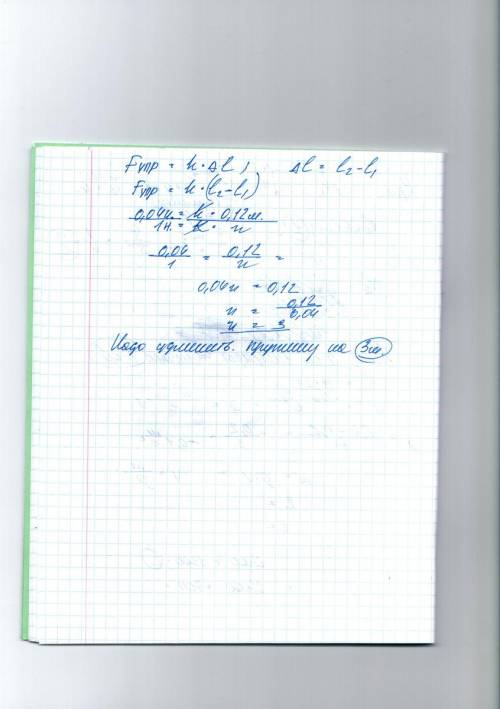 Fупр = k · Δl ; Δl = l₂ - l₁
Fупр = k · (l₂ - l₁)
0,04н. = k · 0,12м.
1н. = k · x
0,04/1 = 0,12/x =
0,04x = 0,12
x = 0,12/0,04
x = 3
Надо удлинить. пружину на 3м.